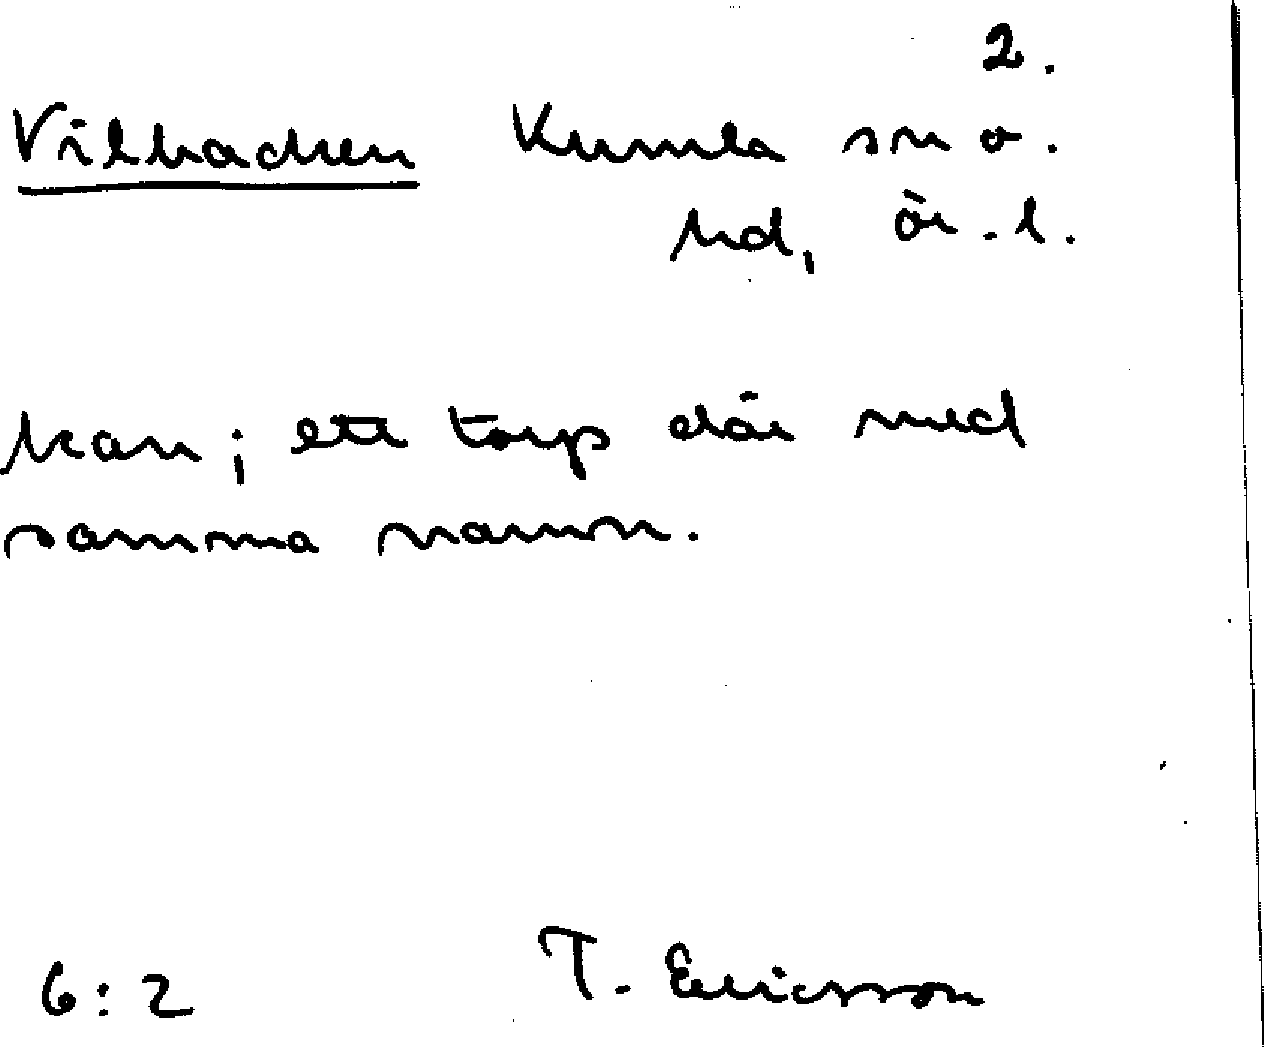 2.
Vilbacken Kumla sn o.
hd, ör. l.
kan; ett torp där med
samma namn.
6:2 T. Ericsson